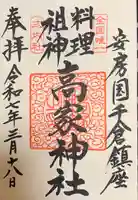 安房国千倉鎮座
料理
祖神
高家神社
奉拝
令和七年三月十八日
全国唯一